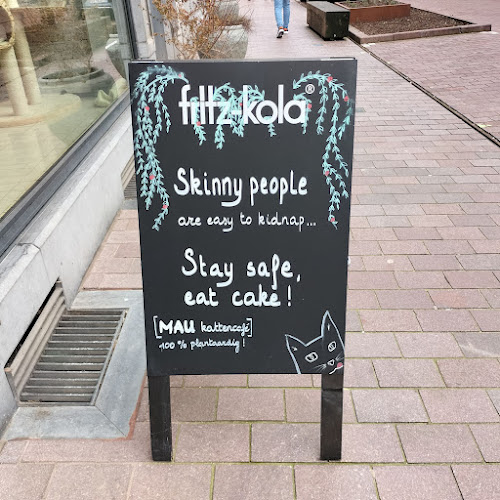 fritz-kola®
Skinny people
are easy to kidnap...
Stay safe,
eat cake!
[MAU kattencafé]
100% plantaardig!